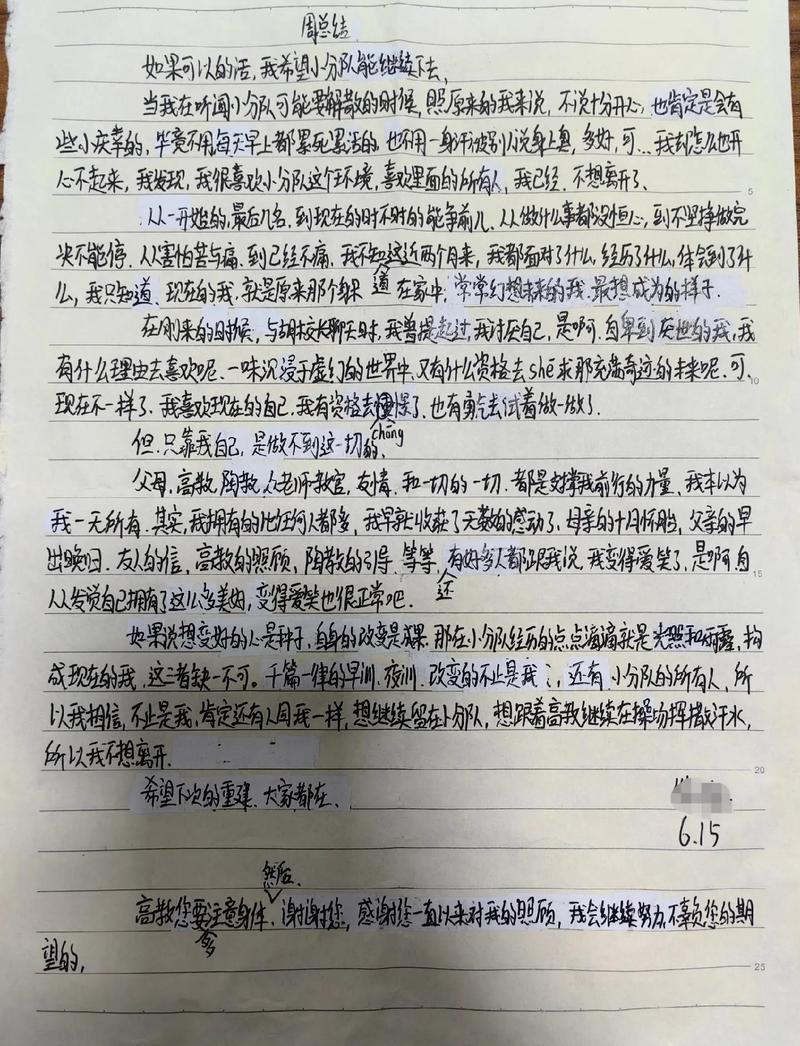 周总结
如果可以的话，我希望小分队能继续下去、
当我在听闻小分队可能要解散的时候，照原来的我来说，不说十分开心，也肯定是会有
些小庆幸的，毕竟不用每天早上都累死累活的，也不用一身汗被别人说身上臭，多好，可...我却怎么也开
心不起来，我发现，我很喜欢小分队这个环境，喜欢里面的所有人，我已经、不想离开了、 5
从一开始的，最后几名，到现在的时不时的能争前几、从做什么事都没恒心，到不坚持做完
决不能停、从害怕苦与痛、到已经不痛、我不知道这近两个月来，我都面对了什么，经历了什么，体会到了什
么，我只知道、现在的我、就是原来那个躲在家中，常常幻想未来的我、最想成为的样子、
在刚来的时候，与胡校长聊天时，我曾提起过，我讨厌自己，是啊，自卑到厌世的我，我
有什么理由去喜欢呢、一味沉浸于虚幻的世界中、又有什么资格去shē求那充满奇迹的未来呢、可、 10
现在不一样了、我喜欢现在的自己、我有资格去憧憬了、也有勇气去试着做一做了、
chōng
但、只靠我自己，是做不到这一切的、
父母、高教、陶教、众老师教官、友情、和一切的一切、都是支撑我前行的力量、我本以为
我一无所有、其实，我拥有的比任何人都多，我早就收获了无数的感动了、母亲的十月怀胎，父亲的早
出晚归、友人的信，高教的照顾，陶教的引导、等等、还有好多人都跟我说，我变得爱笑了，是啊，自 15
从发觉自己拥有了这么多美好，变得爱笑也很正常吧、
如果说想变好的心是种子，自身的改变是成果、那在小分队经历的点点滴滴就是光照和雨露，构
成现在的我，这三者缺一不可。千篇一律的早训、夜训、改变的不止是我、还有、小分队的所有人、所
以我相信，不止是我，肯定还有人同我一样，想继续留在小分队，想跟着高教继续在操场挥撒汗水，
所以我不想离开、 20
希望下次的重建、大家都在、
6.15
高教您要多注意身体、然后、谢谢您，感谢您一直以来对我的照顾，我会继续努力、不辜负您的期
望的， 25